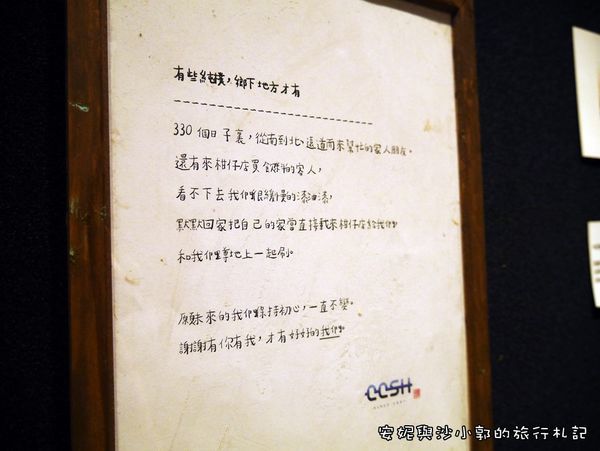 有些純樸，鄉下地方才有
330個日子裏，從南到北、遠道而來幫忙的家人朋友。
還有來柑仔店買飲料的客人，
看不下去我們很緩慢的漆油漆，
默默回家把自己的家當直接載來柑仔店給我們
和我們蹲地上一起刷。
原味來的我們保持初心，一直不變。
謝謝有你有我，才有好好的我們
CCSH
安妮與沙小郭的旅行札記